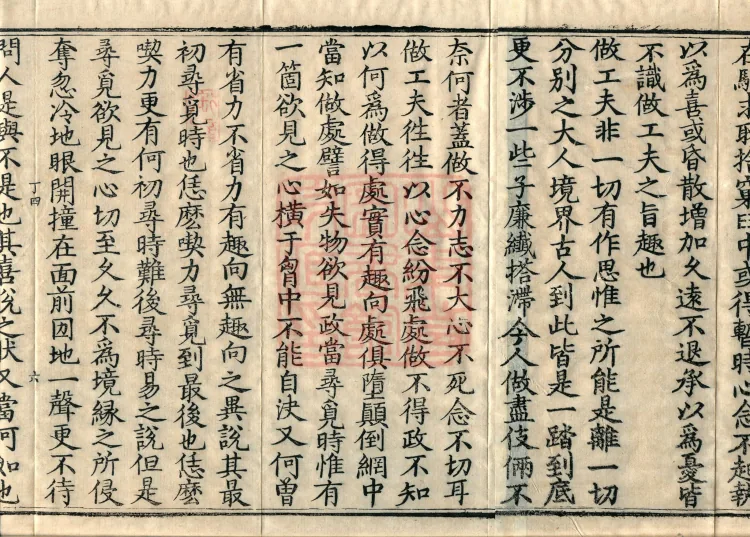 在馳志聰搭窠臼中或得暫時心念不起執
以爲喜或昏散增加久遠不退承以爲憂皆
不識做工夫之旨趣也
做工夫非一切有作思惟之所能是離一切
分別之大人境界古人到此皆是一踏到底
更不涉一些子廉纖搭滯今人做盡伎倆不
柰何者蓋做不力志不大心不死念不切耳
做工夫徃徃以心念紛飛處做不得政不知
以何爲做得處實有趣向處俱墮顚倒網中
當知做處譬如失物欲見政當尋覓時惟有
一箇欲見之心橫于胷中不能自決又何曾
有省力不省力有趣向無趣向之異說其最
初尋覓時也恁麽喫力尋覓到最後也恁麽
喫力更有何初尋時難後尋時易之說但是
尋覓欲見之心切至久久不爲境緣之所侵
奪忽冷地眼開撞在面前囘地一聲更不待
丁四
六
問人是與不是也其喜說之狀又當何如也